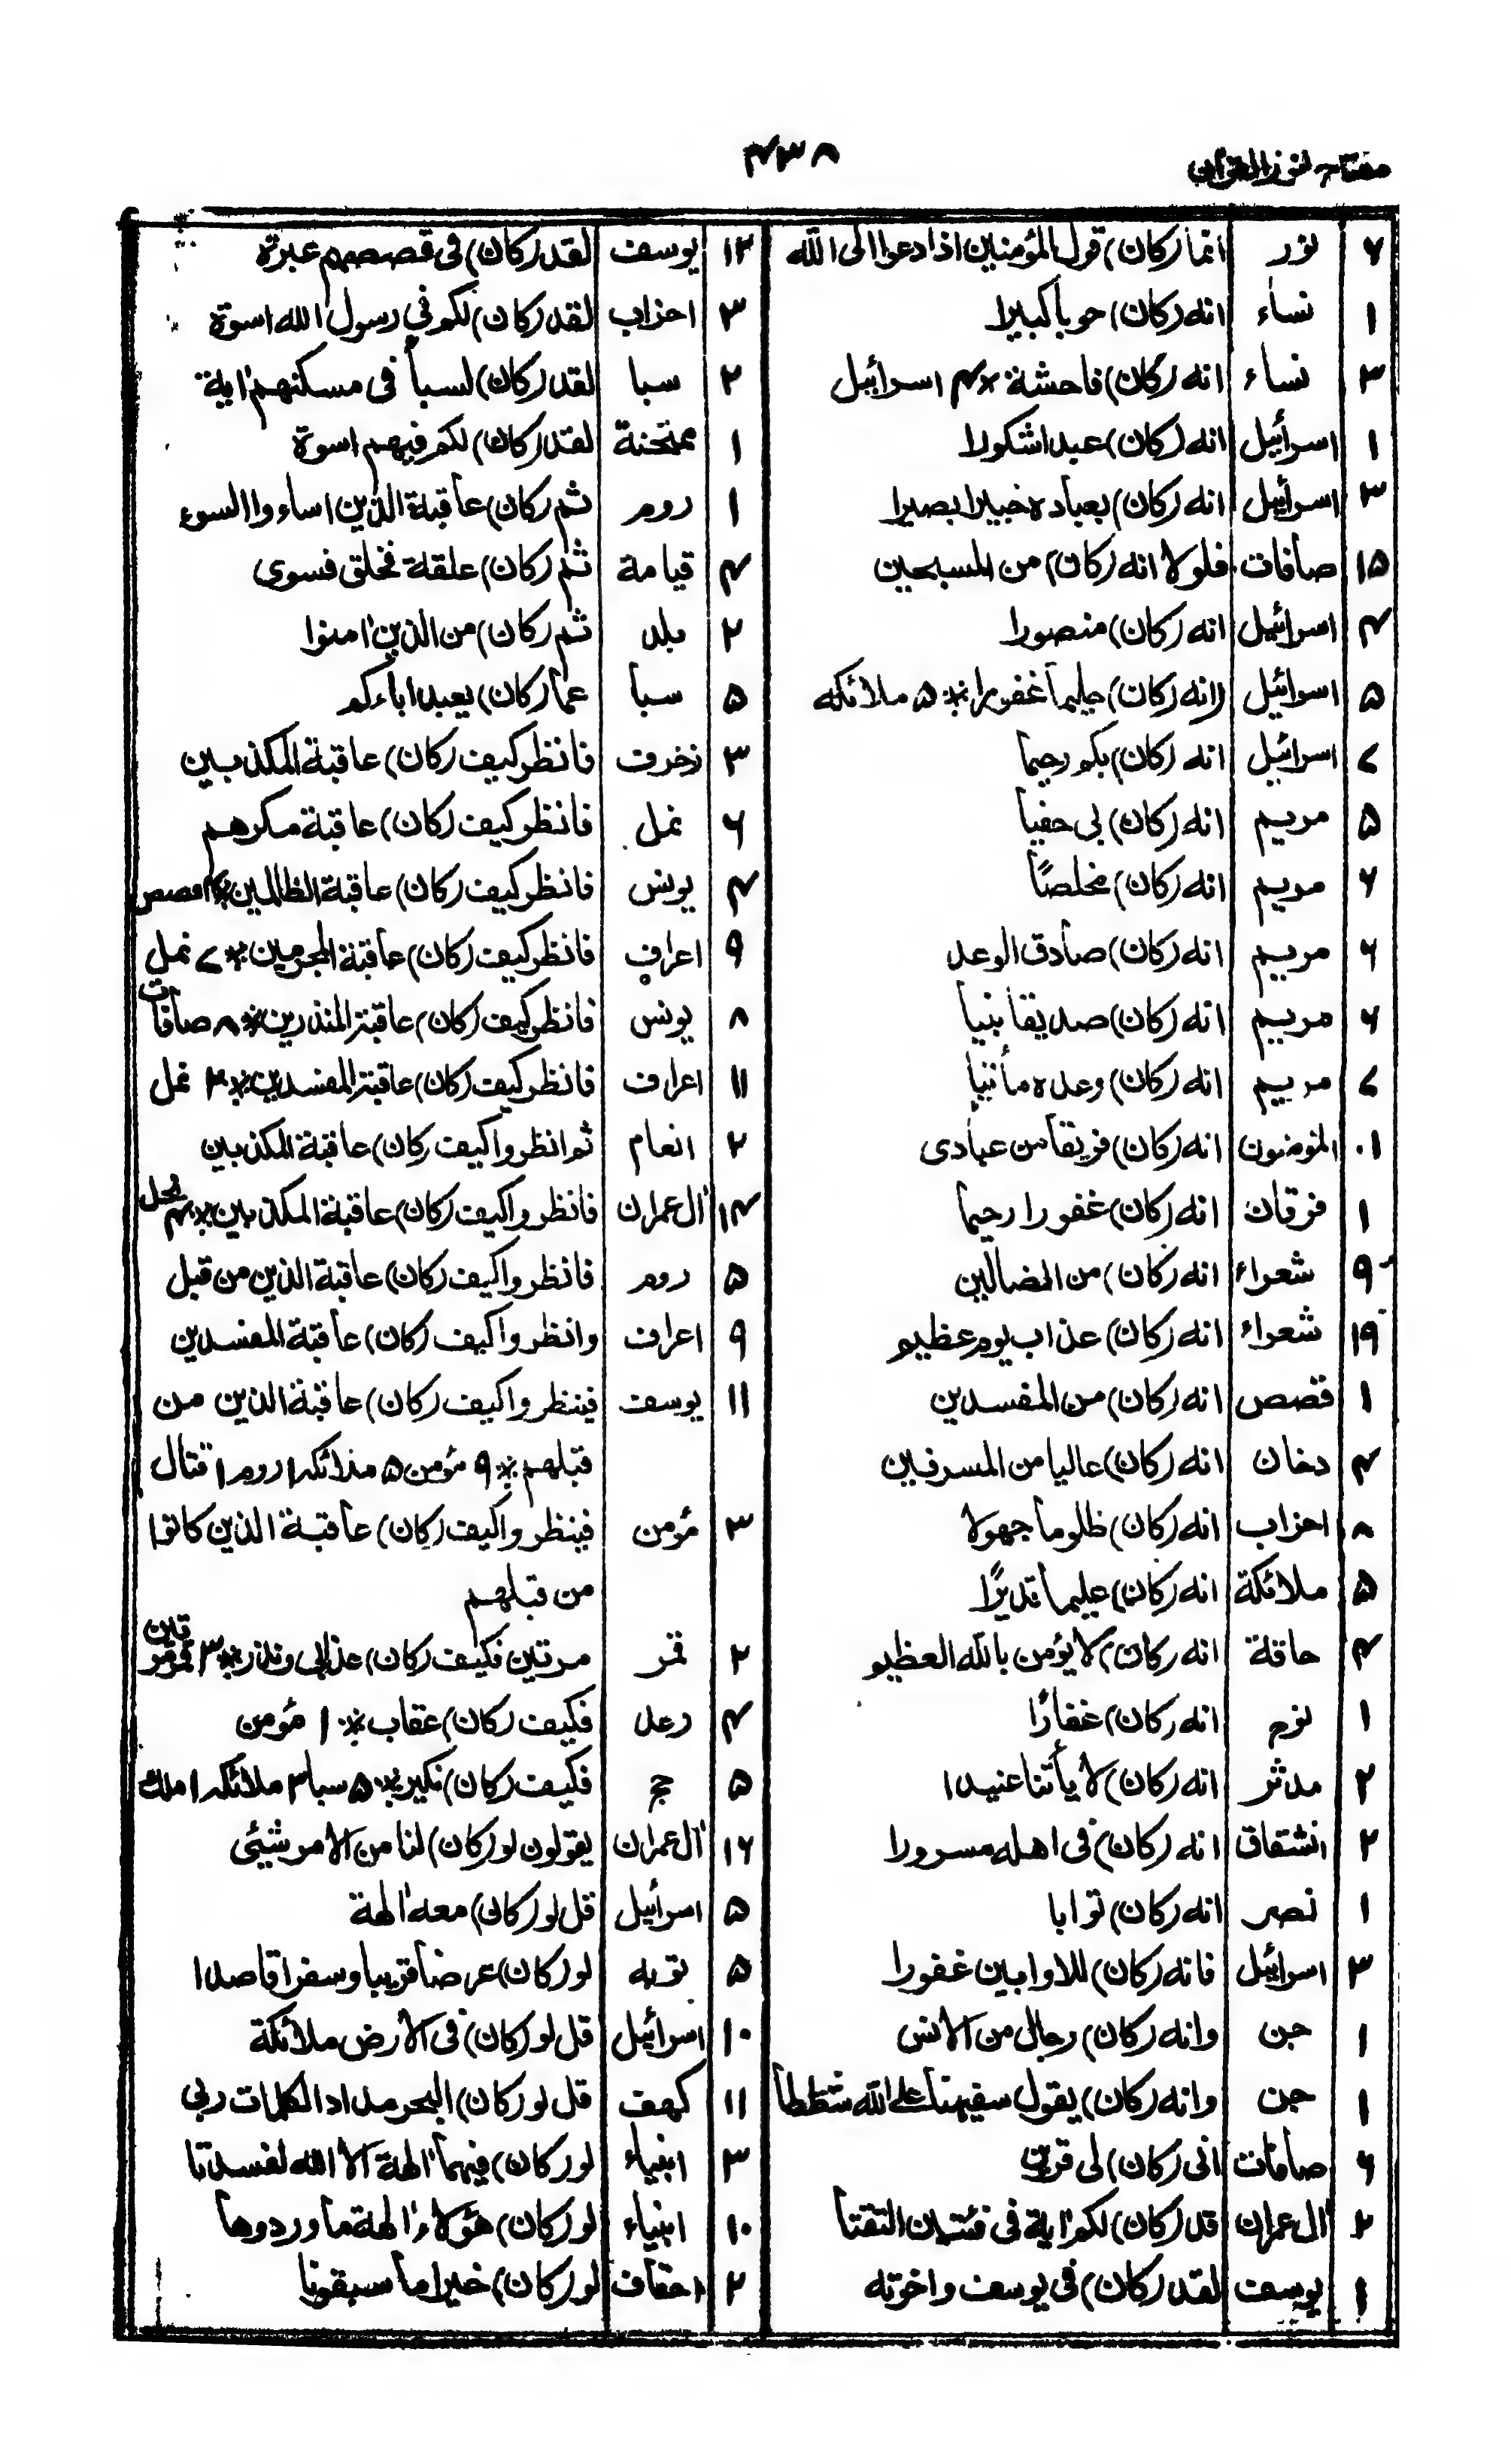 مفتاح كنوز القرآن
۴۳۸
۷ نور انما (كان) قول المؤمنين اذا دعوا الى الله
۱ نساء انه (كان) حوبا كبيرا
۳ نساء انه (كان) فاحشة * ۴ اسرائيل
۱ اسرائيل انه (كان) عبدا شكورا
۳ اسرائيل انه (كان) بعباده خبيرا بصيرا
۱۵ صافات فلولا انه (كان) من المسبحين
۴ اسرائيل انه (كان) منصورا
۵ اسرائيل (انه (كان) حليما غفورا * ۵ ملائكه
۷ اسرائيل انه (كان) بكم رحيما
۵ مريم انه (كان) بى حفيا
۶ مريم انه (كان) مخلصًا
۶ مريم انه (كان) صادق الوعد
۶ مريم انه (كان) صديقا نبيا
۷ مريم انه (كان) وعده مأتيا
۰۱ المؤمنون انه (كان) فريقا من عبادى
۱ فرقان انه (كان) غفورا رحيما
۹ شعراء انه (كان) من الضالين
۱۹ شعراء انه (كان) عذاب يوم عظيم
۱ قصص انه (كان) من المفسدين
۴ دخان انه (كان) عاليا من المسرفين
۸ احزاب انه (كان) ظلوما جهولا
۵ ملائكة انه (كان) عليما قديرًا
۴ حاقة انه (كان) لا يؤمن بالله العظيم
۱ نوح انه (كان) غفارًا
۲ مدثر انه (كان) لا ياتنا عنيدا
۲ انشقاق انه (كان) فى اهله مسرورا
۱ نصر انه (كان) توابا
۳ اسرائيل فانه (كان) للاوابين غفورا
۱ جن وانه (كان) رجال من الانس
۱ جن وانه (كان) يقول سفيهنا على الله شططا
۶ صافات انى (كان) لى قرين
۲ اٰل عمران قد (كان) لكم اٰية فى فئتين التقتا
۱ يوسف لقد (كان) فى يوسف واخوته
۱۲ يوسف لقد (كان) فى قصصهم عبرة
۳ احزاب لقد (كان) لكم في رسول الله اسوة
۲ سبا لقد (كان) لسبأ فى مسكنهم اٰية
۱ ممتحنة لقد (كان) لكم فيهم اسوة
۱ روم ثم (كان) عاقبة الذين اساءوا السوء
۴ قيامة ثم (كان) علقة فخلق فسوى
۲ بلد ثم (كان) من الذين اٰمنوا
۵ سبا عما (كان) يعبد اباءكم
۳ زخرف فانظر كيف (كان) عاقبة المكذبين
۶ نمل فانظر كيف (كان) عاقبة مكرهم
۴ يونس فانظر كيف (كان) عاقبة الظالمين * قصص
۹ اعراف فانظر كيف (كان) عاقبة المجرمين * ۷ نمل
۸ يونس فانظر كيف (كان) عاقبة المنذرين * ۸ صافات
۱۱ اعراف فانظر كيف (كان) عاقبة المفسدين * ۲ نمل
۲ انعام ثم انظروا كيف (كان) عاقبة المكذبين
۱۴ اٰل عمران فانظروا كيف (كان) عاقبة المكذبين * ۴ نحل
۵ روم فانظروا كيف (كان) عاقبة الذين من قبل
۹ اعراف وانظروا كيف (كان) عاقبة المفسدين
۱۱ يوسف فينظروا كيف (كان) عاقبة الذين من
قبلهم * ۹ مؤمن ۵ ملائكه ۱ روم ۱ قتال
۳ مؤمن فينظروا كيف (كان) عاقبة الذين كانوا
من قبلهم
۲ قمر مرتين فكيف (كان) عذابى ونذر * ۳ قمر مرتين
۴ رعد فكيف (كان) عقاب * ۱ مؤمن
۵ حج فكيف (كان) نكير * ۵ سبا ۳ ملائكه ۱ ملك
۱۶ اٰل عمران يقولون لو (كان) لنا من الامر شيئى
۵ اسرائيل قل لو (كان) معه اٰلهة
۵ توبه لو (كان) عرضا قريبا وسفرا قاصدا
۱۰ اسرائيل قل لو (كان) فى الارض ملائكة
۱۱ كهف قل لو (كان) البحر مداد الكلمات ربى
۳ انبياء لو (كان) فيهما اٰلهة الا الله لفسدتا
۱۰ انبياء لو (كان) هؤلاء اٰلهة ما وردوها
۲ احقاف لو (كان) خيرا ما سبقونا